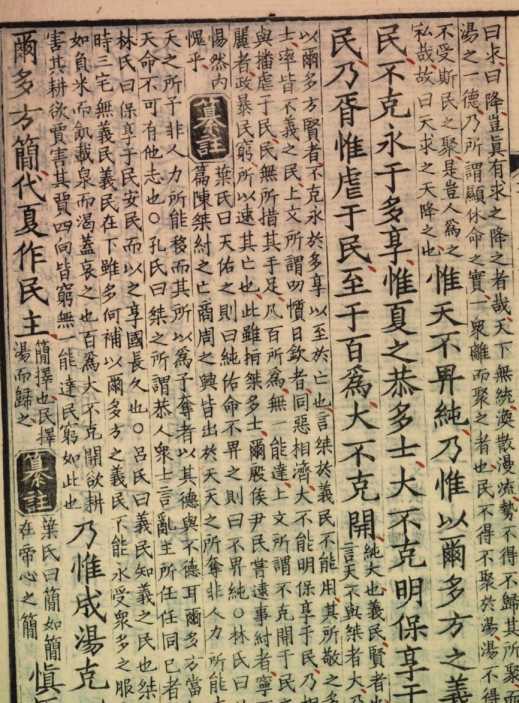 曰求曰降豈真有求之降之者哉天下無統渙散漫流勢不得不歸其所聚而
湯之一德乃所謂顯休命之實一衆離而聚之者也民不得不聚於湯湯不得
不受斯民之聚是豈人為之
私哉故曰天求之天降之也
惟天不畀純乃惟以爾多方之義
民不克永于多享惟夏之恭多士大不克明保享于
民乃胥惟虐于民至于百爲大不克開
純大也義民賢者也
言天不與桀者大乃
以爾多方賢者不克永於多享以至於亡也言桀於義民不能用其所敬之多
士率皆不義之民上文所謂叨懫日欽者同惡相濟大不能明保享于民乃相
與播虐于民民無所措其手足凡百所爲無一能達上文所謂不克開于民之
麗者政暴民窮所以速其亡也此雖指桀多士爾殷侯尹民嘗逮事紂者寧
惕然内
愧乎
纂註
葉氏曰天佑之則曰純佑命不畀之則曰不畀純○林氏曰此
篇陳桀紂之亡商周之興皆出於天天之所奪非人力所能
天之所予非人力所能移而其所以爲予奪者以其德與不德耳爾多方當
天命不可有他志也○孔氏曰桀之所謂恭人衆士言亂主所任任同已者
林氏曰保享于民安民而以之享國長久也○呂氏曰義民知義之民也桀
時三宅無義民義民在下雖多何補以爾多方之義民不能永受衆多之服
如負米而飢載泉而渴蓋哀之也百爲大不克開欲耕
害其耕欲賈害其賈四向皆窮無一能達民窮如此也
乃惟成湯克
爾多方簡代夏作民主
簡擇也民擇
湯而歸之
纂註
葉氏曰簡如簡
在帝心之簡
慎